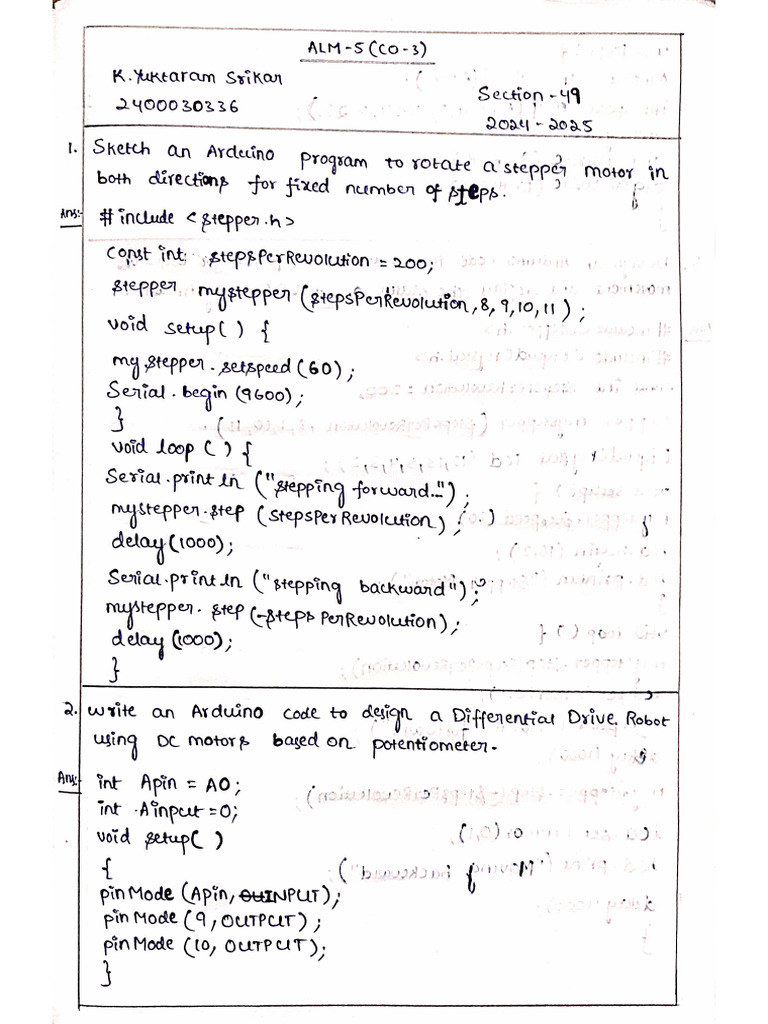 ALM-5 (CO-3)
K. Yuktaram Srikar
2400030336
Section - 49
2024-2025
1. Sketch an Arduino program to rotate a stepper motor in
both directions for fixed number of steps.
Ans:- #include <stepper.h>
const int stepsPerRevolution = 200;
stepper mystepper (stepsPerRevolution, 8, 9, 10, 11);
void setup() {
mystepper.setspeed(60);
Serial.begin(9600);
}
void loop() {
Serial.println ("stepping forward...");
mystepper.step (stepsPerRevolution);
delay(1000);
Serial.println ("stepping backward");
mystepper.step (-stepsPerRevolution);
delay(1000);
}
2. Write an Arduino code to design a Differential Drive Robot
using DC motors based on potentiometer.
Ans:- int Apin = A0;
int Ainput = 0;
void setup()
{
pinMode (Apin, INPUT);
pinMode (9, OUTPUT);
pinMode (10, OUTPUT);
}